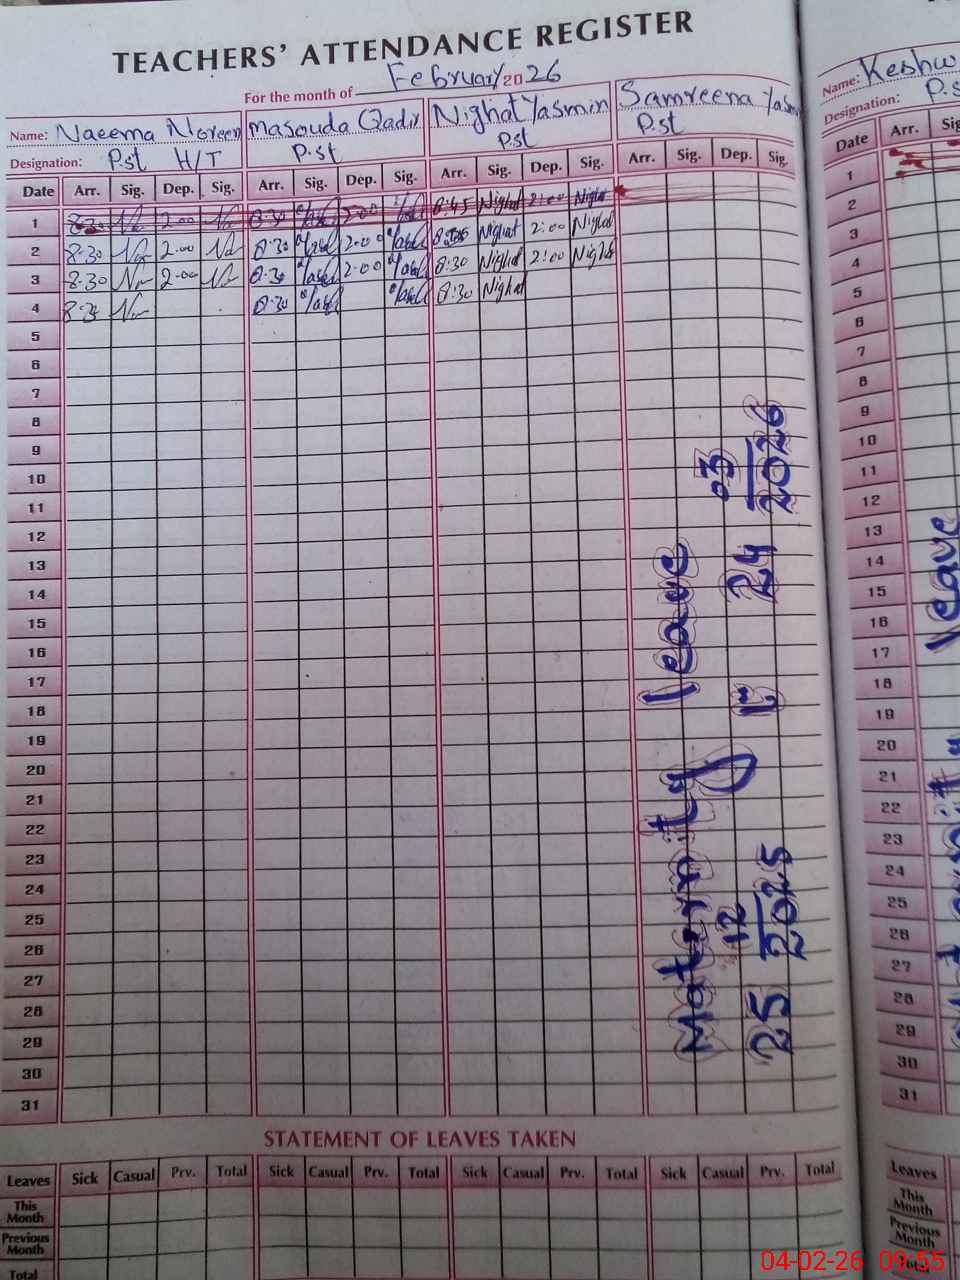 TEACHERS' ATTENDANCE REGISTER
For the month of February 2026
Name: Naeema Noreen Masouda Qadir Nighat Yasmin Samreena Yasm
Designation: P.st H/T P.st P.st P.st
Date Arr. Sig. Dep. Sig. Arr. Sig. Dep. Sig. Arr. Sig. Dep. Sig. Arr. Sig. Dep. Sig.
1 8:30 2:00 8:30 2:00 8:45 Nighat 2:00 Nighat
2 8:30 2:00 8:30 2:00 Nighat 2:00 Nighat
3 8:30 2:00 8:30 2:00 8:30 Nighat 2:00 Nighat
4 8:30 8:30 Nighat
5
6
7
8
9
10
11
12
13
14
15
16
17
18
19
20
21
22
23
24
25
26
27
28
29
30
31
Maternity leave
25 12 2025 to 24 03 2026
STATEMENT OF LEAVES TAKEN
Leaves Sick Casual Prv. Total Sick Casual Prv. Total Sick Casual Prv. Total Sick Casual Prv. Total
This Month
Previous Month
Total
Name: Keshw
Designation: P.S
Date Arr. Sig
1
2
3
4
5
6
7
8
9
10
11
12
13
14
15
16
17
18
19
20
21
22
23
24
25
26
27
28
29
30
31
leave
Leaves
This Month
Previous Month
Total
04-02-26 09:55